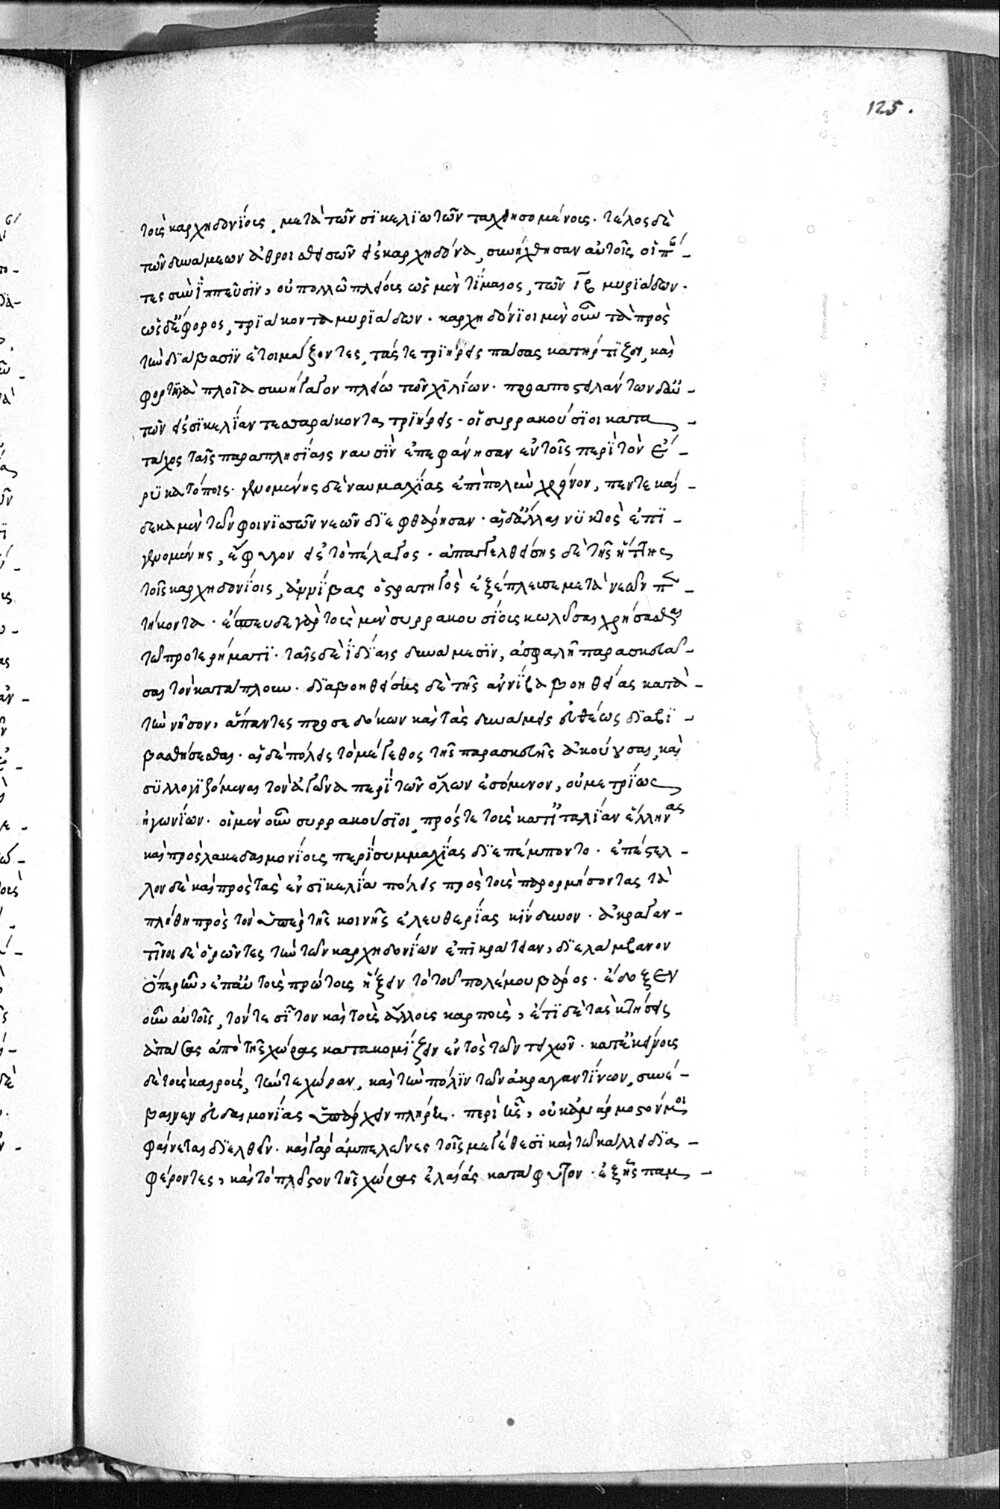 125.
τοῖς καρχηδονίοις, μετὰ τῶν σϊκελϊωτῶν ταχθησομένοις. τέλος δὲ
τῶν δυνάμεων ἀθροισθεισῶν εἰς καρχηδόνα, συνήχθησαν αὐτοῖς οἱ πά
τες σὺν ἱππεῦσϊν, οὐ πολλῶ πλείους ὡς μὲν τίμαιος, τῶν ιβ μυριάδων.
ὡς δ' ἔφορος, τριάκοντα μυριάδων. καρχηδόνϊοι μὲν οὖν τὰ πρὸς
τὴν δϊάβασϊν ἑτοιμάζοντες, τάς τε τρϊήρεις πάσας κατήρτϊζον, καὶ
φορτηγὰ πλοῖα συνήγαγον πλείω τῶν χϊλίων. προαποστειλάντων δ' αὐ-
τῶν εἰς σϊκελίαν τεσσαράκοντα τρϊήρεις. οἱ συρρακούσϊοι κατα
τάχος ταῖς παραπλησίαις ναυσὶν ἐπεφάνησαν ἐν τοῖς περὶ τὸν ἔ-
ρϋκα τόποις. γενομένης δὲ ναυμαχίας ἐπὶ πολὺν χρόνον, πεντεκαί-
δεκα μὲν τῶν φοινϊσσῶν νεῶν δϊεφθάρησαν. αἱ δ' ἄλλαι νϋκτὸς ἐπϊ-
γενομένης, ἔφυγον εἰς τὸ πέλαγος. ἀπαγγελθείσης δὲ τῆς ἥττης
τοῖς καρχηδονΐοις, ἀννίβας ὁ στρατηγὸς ἐξέπλευσε μετὰ νεῶν π-
τήκοντα. ἔσπευδε γὰρ τοὺς μὲν συρρακουσίους κωλῦσαι χρήσασθαι
τῶ προτερήματϊ. ταῖς δὲ ἰδίαις δυνάμεσϊν, ἀσφαλῆ παρασκευά-
σαι τὸν κατάπλουν. δϊαβοηθείσης δὲ τῆς ἀννίβα βοηθείας κατὰ
τὴν νῆσον, ἅπαντες προσεδόκων καὶ τὰς δυνάμεις εὐθέως δϊαβϊ-
βασθήσεσθαι. αἱ δὲ πόλεις τὸ μέγεθος τῆς παρασκευῆς ἀκούουσαι, καὶ
σϋλλογϊζόμεναι τὸν ἀγῶνα περὶ τῶν ὅλων ἐσόμενον, οὐ μετρίως
ἠγωνίων. οἱ μὲν οὖν συρρακούσϊοι, πρός τε τοὺς κατ' ἰταλίαν ἕλληνας
καὶ πρὸς λακεδαιμονίους περὶ συμμαχίας δϊεπέμποντο. ἐπέστελ-
λον δὲ καὶ πρὸς τὰς ἐν σϊκελία πόλεις πρὸς τοὺς παρορμήσοντας τὰ
πλήθη πρὸς τὸν ὑπὲρ τῆς κοινῆς ἐλευθερίας κίνδυνον. ἀκραγαν-
τῖνοι δὲ ὁρῶντες τὴν τῶν καρχηδονίων ἐπϊκράτειαν, δϊελάμβανον
ὅπερ ἦν, ἐπ' αὐτοὺς πρώτους ἥξειν τὸ τοῦ πολέμου βάρος. ἔδοξεν
οὖν αὐτοῖς, τόν τε σῖτον καὶ τοὺς ἄλλους καρποὺς, ἔτι δὲ τὰς κτήσεις
ἁπάσας ἀπὸ τῆς χώρας κατακομίζειν ἐντὸς τῶν τειχῶν. κατ' ἐκείνους
δὲ τοὺς καιροὺς, τήν τε χώραν, καὶ τὴν πόλϊν τῶν ἀκραγαντίνων, συνέ-
βαινεν εὐδαιμονίας ὑπάρχειν πλήρη. περὶ ἧς, οὐκ ἀνάρμοστόν μοι
φαίνεται δϊελθεῖν. καὶ γὰρ ἀμπελῶνες τοῖς μεγέθεσϊ καὶ τῶ κάλλει δϊα-
φέροντες, καὶ τὸ πλεῖστον τῆς χώρας ἐλαίαις κατάφυτον. ἐξ ἧς παμ-